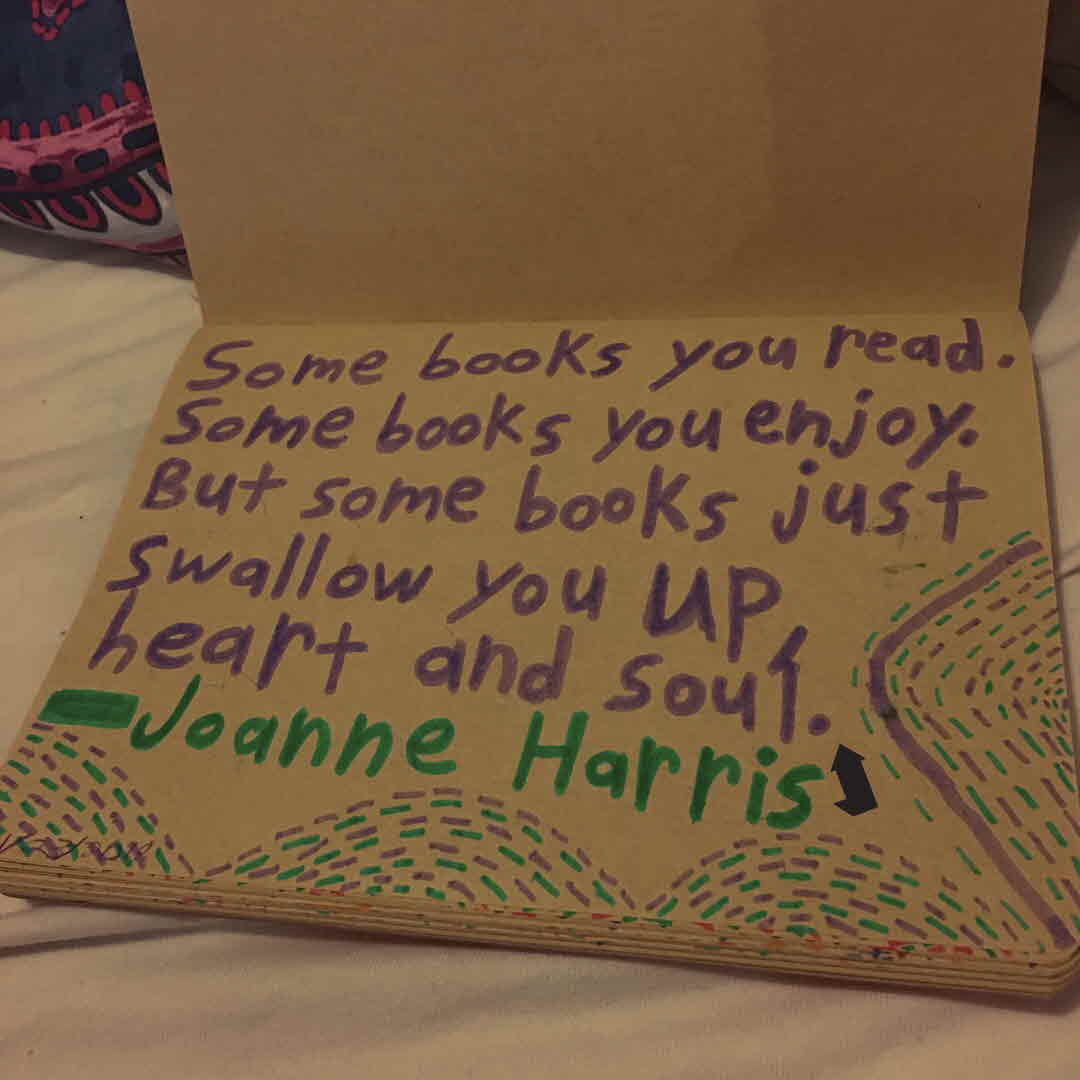 Some books you read.
Some books you enjoy.
But some books just
swallow you UP,
heart and soul.
-Joanne Harris